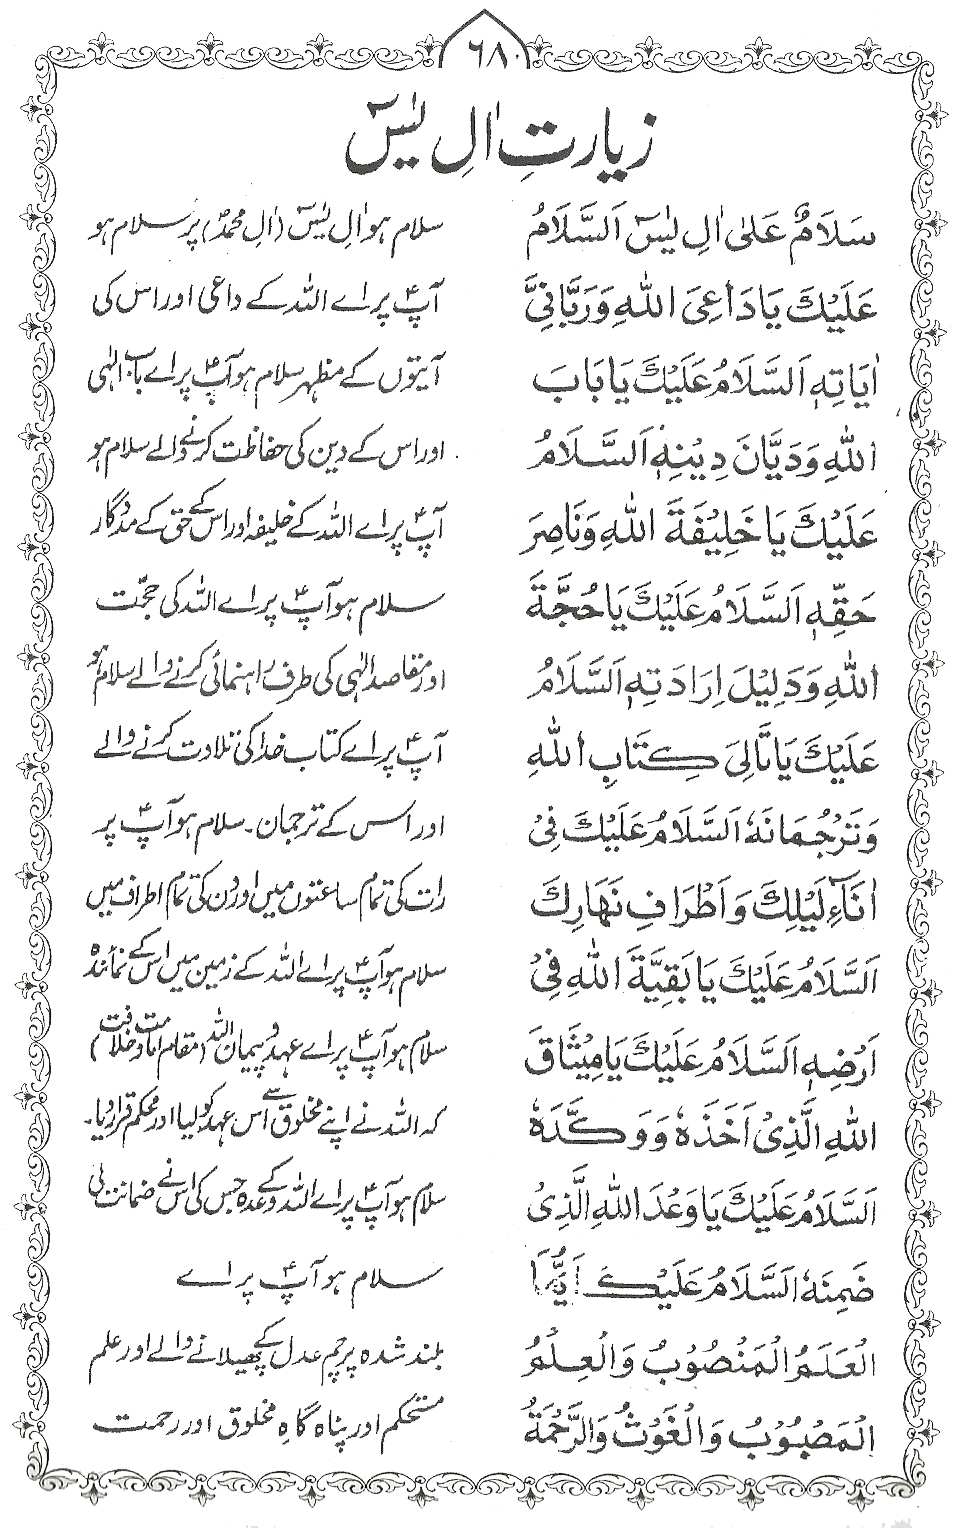 ۶۸۰
زیارتِ اٰلِ یٰسٓ
سَلَامٌ عَلیٰ اٰلِ یٰسٓ اَلسَّلَامُ
سلام ہو اٰلِ یٰسٓ (اٰلِ محمدؐ) پر سلام ہو
عَلَیْكَ یَا دَاعِیَ اللّٰهِ وَرَبَّانِیَّ
آپؑ پر اے اللہ کے داعی اور اس کی
اٰیَاتِهٖ اَلسَّلَامُ عَلَیْكَ یَا بَابَ
آیتوں کے مظہر سلام ہو آپؑ پر اے باب الٰہی
اللّٰهِ وَدَیَّانَ دِیْنِهٖ اَلسَّلَامُ
اور اس کے دین کی حفاظت کرنے والے سلام ہو
عَلَیْكَ یَا خَلِیْفَةَ اللّٰهِ وَنَاصِرَ
آپؑ پر اے اللہ کے خلیفہ اور اس کے حق کے مددگار
حَقِّهٖ اَلسَّلَامُ عَلَیْكَ یَا حُجَّةَ
سلام ہو آپؑ پر اے اللہ کی حجّت
اللّٰهِ وَدَلِیْلَ اِرَادَتِهٖ اَلسَّلَامُ
اور مقاصد الٰہی کی طرف راہنمائی کرنے والے سلام ہو
عَلَیْكَ یَا تَالِیَ كِتَابِ اللّٰهِ
آپؑ پر اے کتاب خدا کی تلاوت کرنے والے
وَتَرْجُمَانَهٗ اَلسَّلَامُ عَلَیْكَ فِیْ
اور اس کے ترجمان۔ سلام ہو آپؑ پر
اٰنَآءِ لَیْلِكَ وَاَطْرَافِ نَهَارِكَ
رات کی تمام ساعتوں میں اور دن کی تمام اطراف میں
اَلسَّلَامُ عَلَیْكَ یَا بَقِیَّةَ اللّٰهِ فِیْ
سلام ہو آپؑ پر اے اللہ کے زمین میں اس کے نمائندہ
اَرْضِهٖ اَلسَّلَامُ عَلَیْكَ یَا مِیْثَاقَ
سلام ہو آپؑ پر اے عہد و پیمان اللہ (مقام امامت و خلافت)
اللّٰهِ الَّذِیْ اَخَذَهٗ وَوَكَّدَهٗ
کہ اللہ نے اپنے مخلوق سے اس عہد کو لیا اور محکم قرار دیا۔
اَلسَّلَامُ عَلَیْكَ یَا وَعْدَ اللّٰهِ الَّذِیْ
سلام ہو آپؑ پر اے اللہ کے وعدہ جس کی اس نے ضمانت لی
ضَمِنَهٗ اَلسَّلَامُ عَلَیْكَ اَیُّهَا
سلام ہو آپؑ پر اے
الْعَلَمُ الْمَنْصُوْبُ وَالْعِلْمُ
بلند شدہ پرچم عدل کے پھیلانے والے اور علم
الْمَصْبُوْبُ وَالْغَوْثُ وَالرَّحْمَةُ
مستحکم اور پناہ گاہِ مخلوق اور رحمت